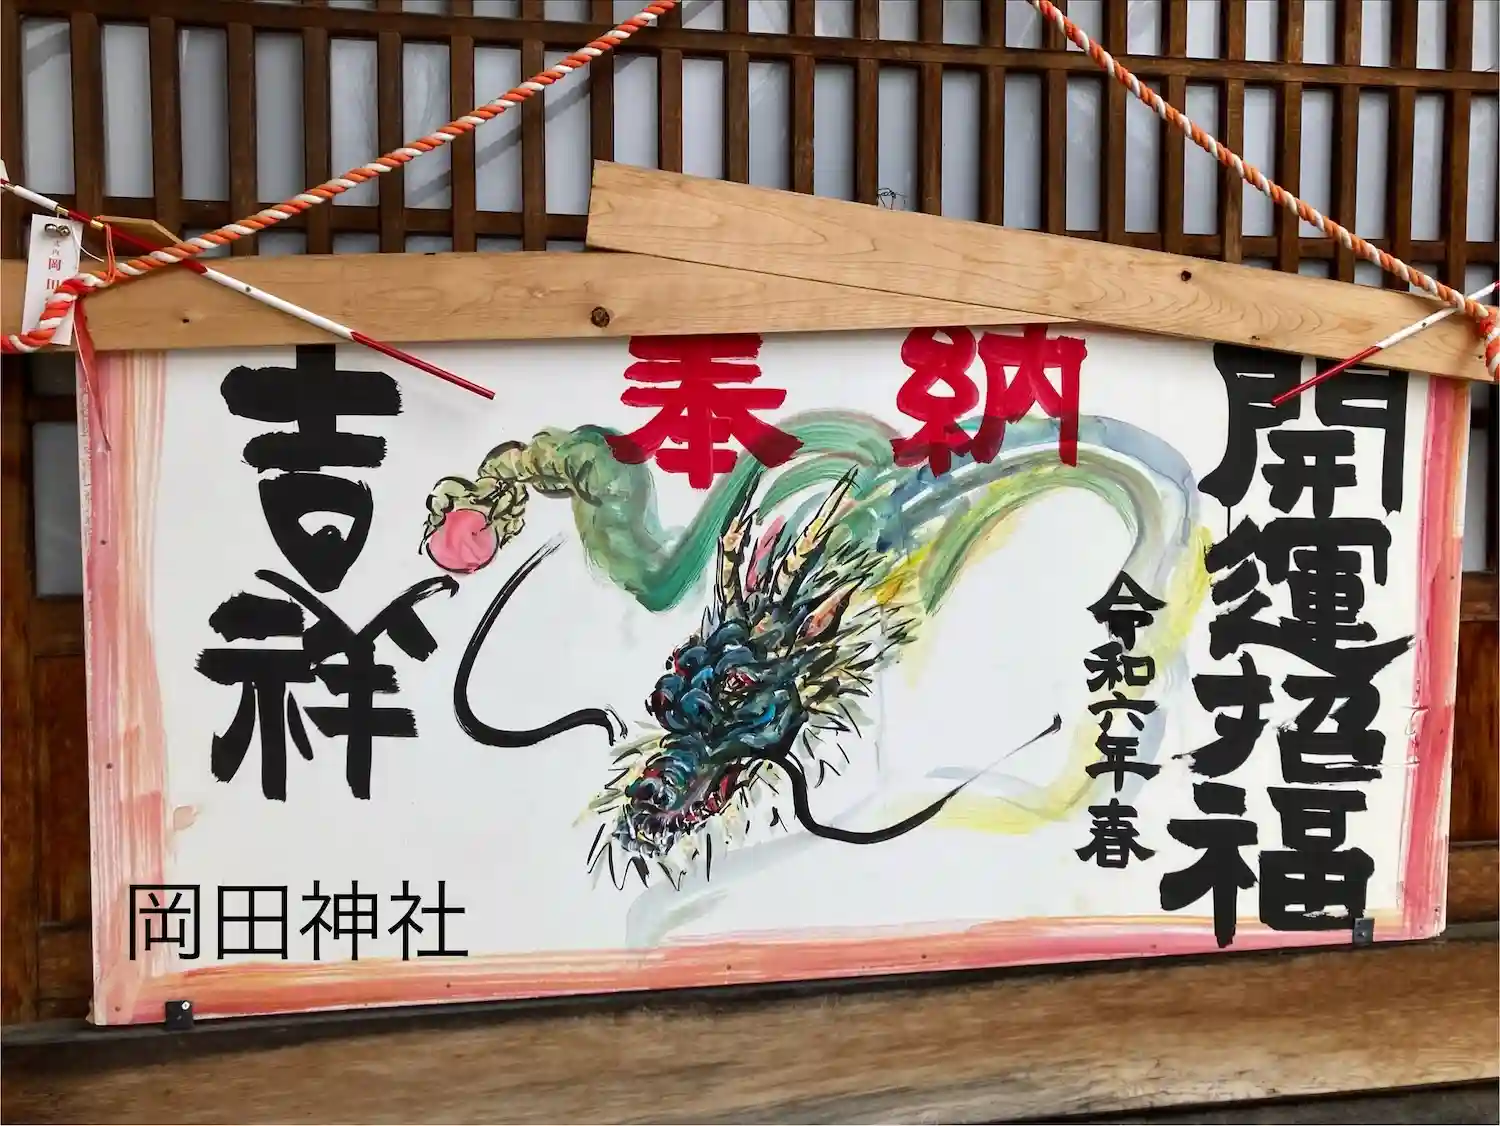 奉納
開運招福
令和六年春
吉祥
岡田神社
岡田